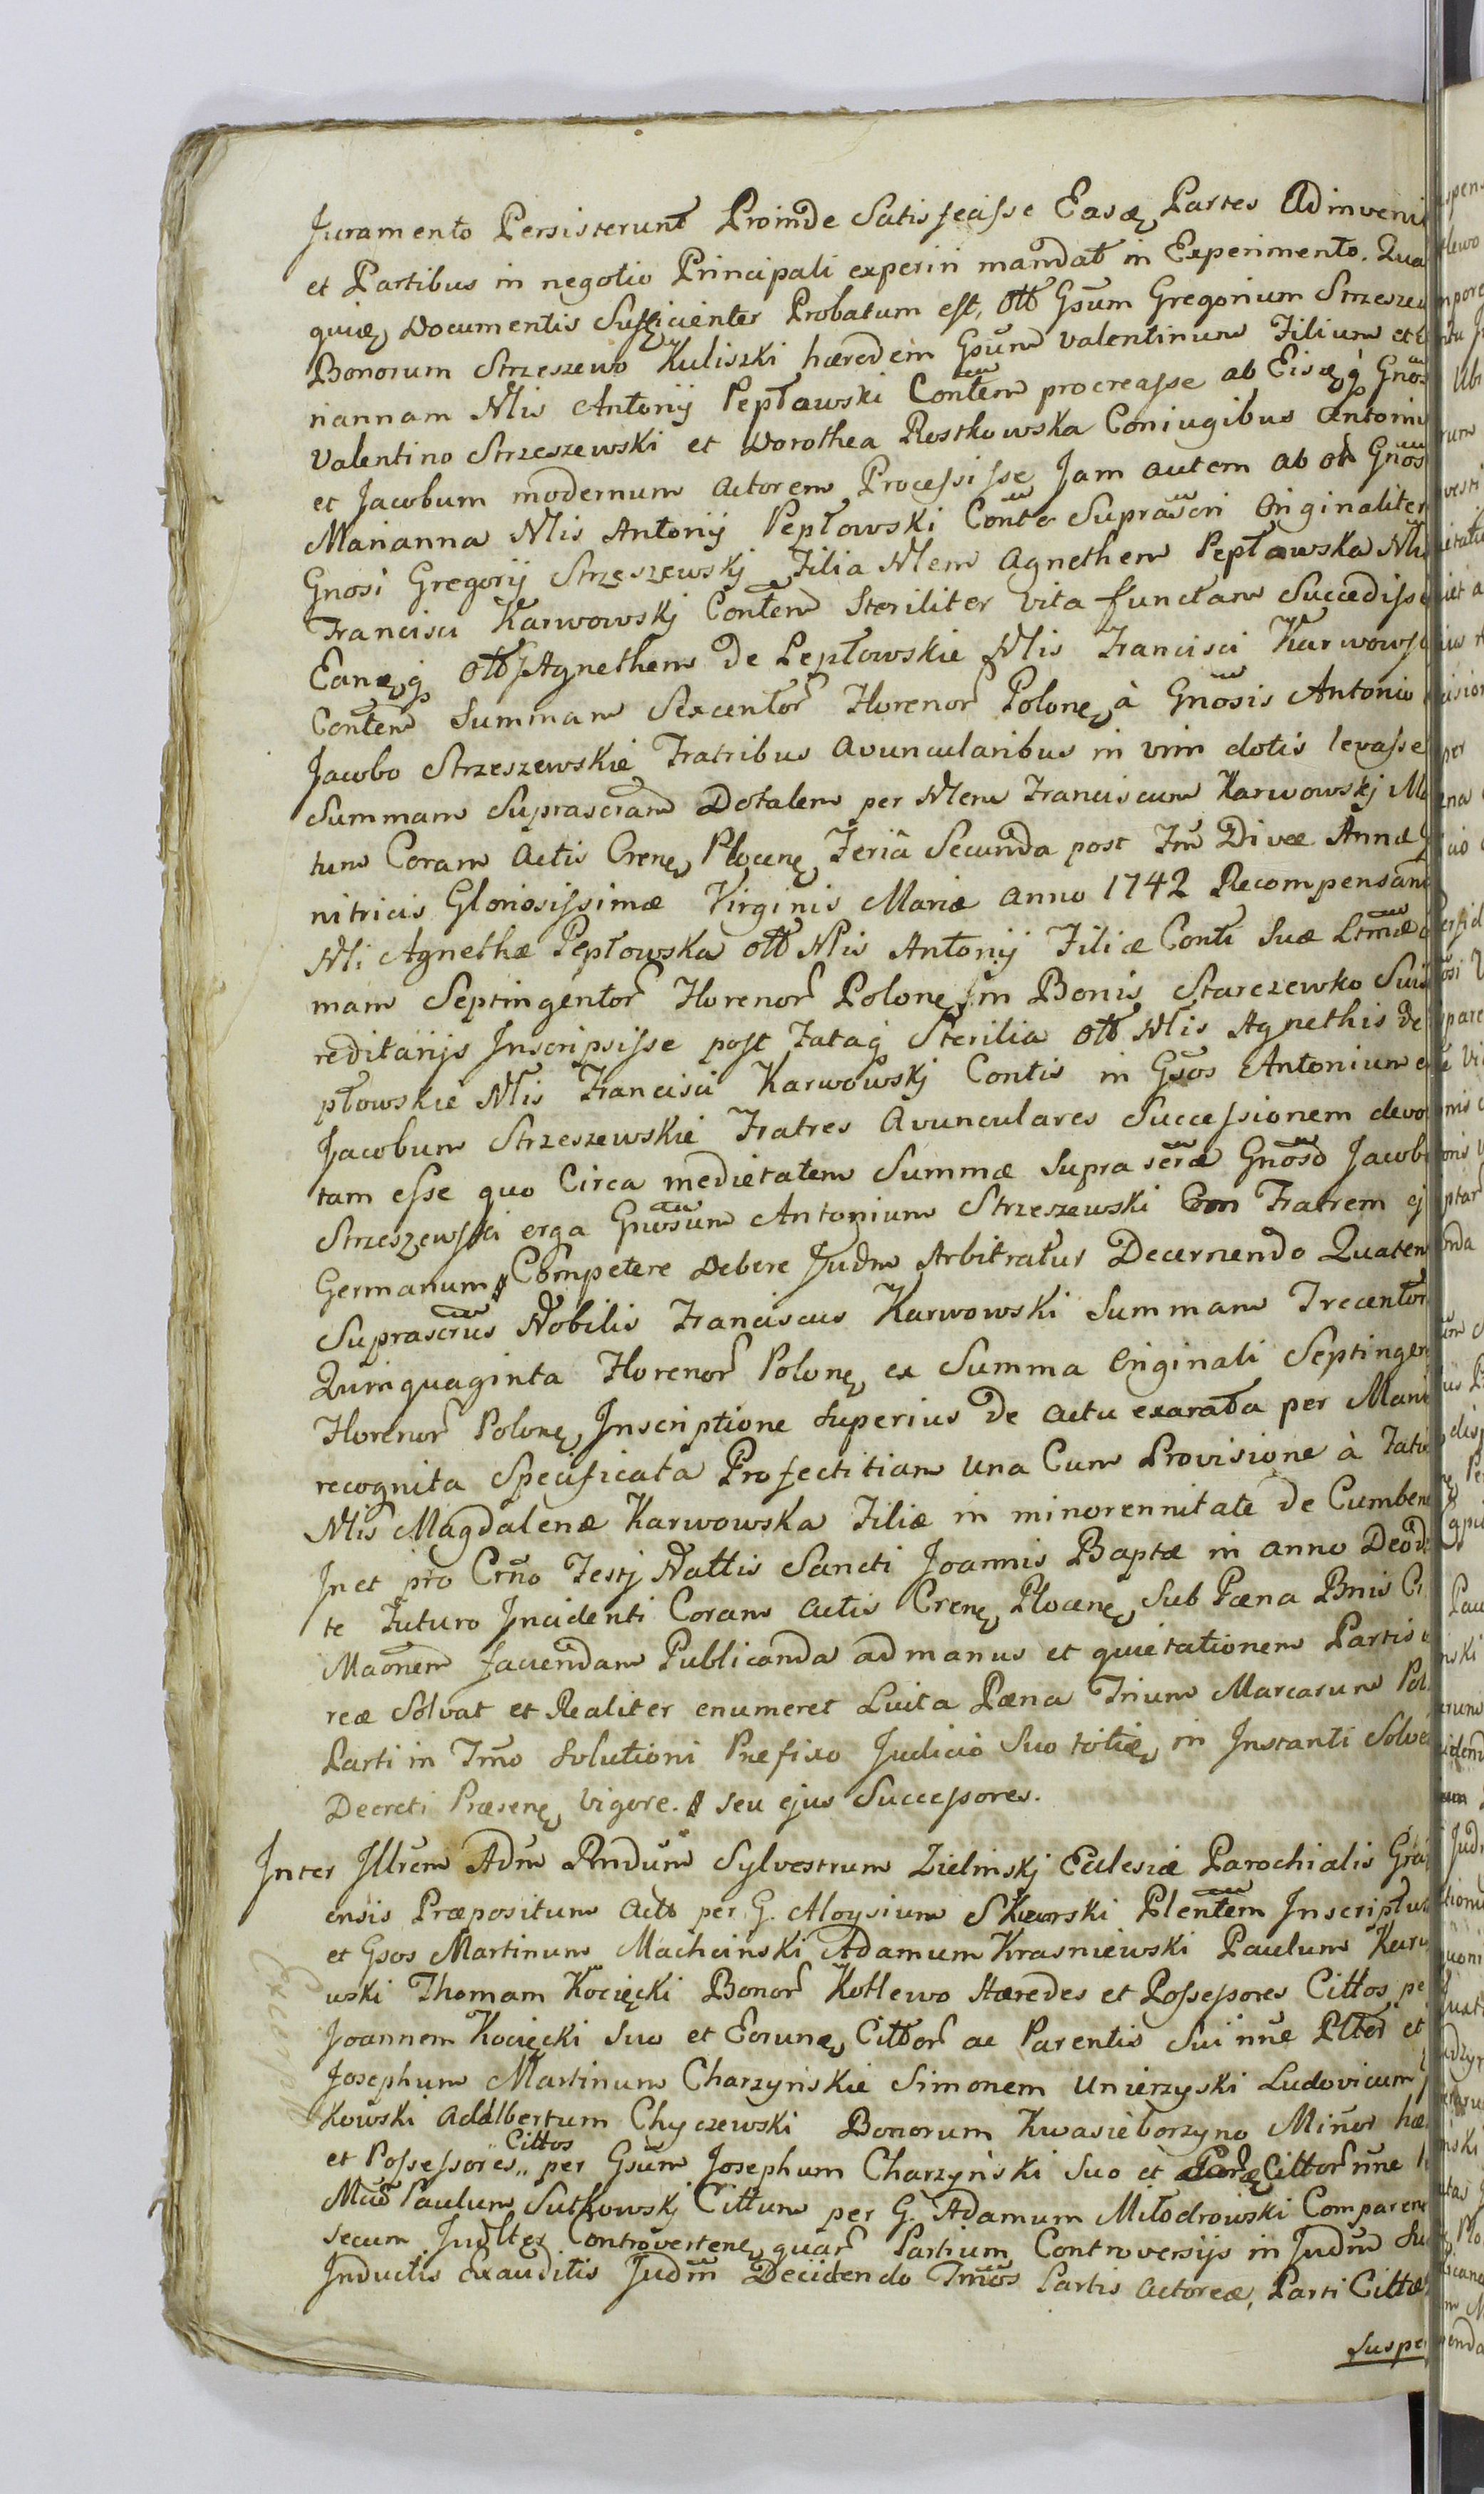 Juramento Persisterunt Proinde Satisfecisse Easq, Partes Adinveni
et Partibus in negotio Principali experiri mandat in Experimento. Qua
quiq, Documentis Sufficienter Probatum est, Olt Gsum Gregorium Strzeszew
Bonorum Strzeszewo Kuliszki hæredem Gsum Valentinum Filium et
riannam Nlis Antonij Pepławski Contem procreasse ab Eisq,q Gnos
Valentino Strzeszewski et Dorothea Rostkowska Coniugibus Antoniu
et Jacobum modernum Actorem Processisse Jam autem ab olt Gnos
Marianna Nlis Antonij Pepłowski Conte Suprascri Originaliter
Gnosi Gregorij Strzeszewskj Filia Nlem Agnethem Pepławska Nlis
Francisci Karwowskj Contem Steriliter vita functam Succedisse
Eanq,q Olt Agnethem de Pepłowskie Nlis Francisci Karwows
Contem Summam Sexcentor Florenor Polone, à Gnosis Antonio
Jacobo Strzeszewskie Fratribus Avuncularibus in vim dotis levasse
Summam Suprascram Dotalem per Nlem Franciscum Karwowskj Ma
tum Coram Actis Crene, Plocene, Feriâ Secunda post Fm Divæ Annæ
nitricis Gloriosissimæ Virginis Mariæ Anno 1742 Recompensan
Nli Agnethæ Pepłowska olt Nlis Antonij Filiæ Conti Suæ Ltmæ
mam Septingentor Florenor Polone, in Bonis Starczewko Suis
reditarijs Inscripsisse post Fataq Sterilia olt Nlis Agnethis de
płowskie Nlis Francisci Karwowskj Contis in Gsos Antonium e
Jacobum Strzeszewskie Fratres Avunculares Successionem devo
tam esse quo Circa medietatem Summæ Supra scræ Gnoso Jacobo
Strzeszewski erga Gnosum Antonium Strzeszewski Fratrem ej
Germanum Competere Debere Judm Arbitratur Decernendo Quaten
Suprascrus Nobilis Franciscus Karwowski Summam Trecentor
Quinquaginta Florenor Polone, ex Summa Originali Septingen
Florenor Polone, Inscriptione Superius de actu exarata per Mani
recognita Specificata Profectitiam una Cum Provisione à Fatis
Nlis Magdalenæ Karwowska Filiæ in minorennitate de Cumben
In et pro Crno Festj Nattis Sancti Joannis Baptæ in anno Deod
te Futuro Incidenti Coram Actis Crene, Plocene, Sub Pæna Bnis Ci
Maonem faciendam Publicanda ad manus et quietationem Partis
reæ Solvat et Realiter enumeret Luita Pæna Trium Marcarum Pol
Parti in Tmo Solutioni Prefixo Judicio Suo totie, in Instanti Solve
Decreti Præsene, vigore. seu ejus Successores.
Inter Illrem Adm Rndum Sylvestrum Zielinskj Ecclesiæ Parochialis Gra
ensis Præpositum Actt per G. Aloysium Plentem Inscriptus
et Gsos Martinum Machcinski Adamum Krasniewski Paulum Karw
wski Thomam Kocięcki Bonor Kotlewo Hæredes et Possessores Cittos pe
Joannem Kocięcki Suo et Eorunq, Cittor ac Parentis Sui nne et
Josephum Martinum Charzyńskie Simonem Unierzyski Ludovicum
kowski Adalbertum Chyczewski Bonorum Kwasieborzyno Minor hæ
et Possessores,, Cittos per Gsum Josephum Charzyński Suo et Cittor nne
Paulum Sutkowskj Cittum per G. Adamum Miłodrowski Comparen
secum Judlter Controvertene, quar Partium Controversijs in Judm Su
Inductis Exauditis Judm Decidendo Tmos Partis Actoreæ, Parti Cittæ
Suspe